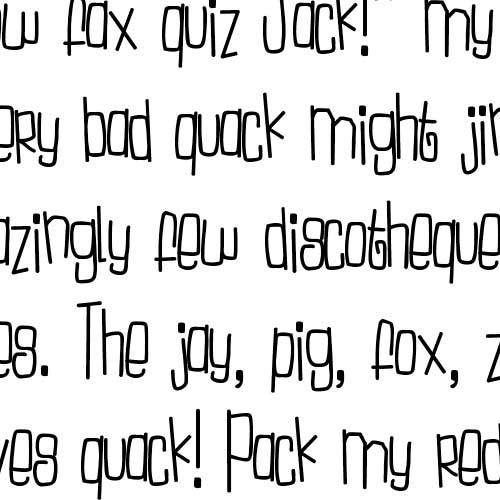 ow fax quiz Jack!" my
ery bad quack might jin
azingly few discotheque
es. The jay, pig, fox, z
ves quack! Pack my red